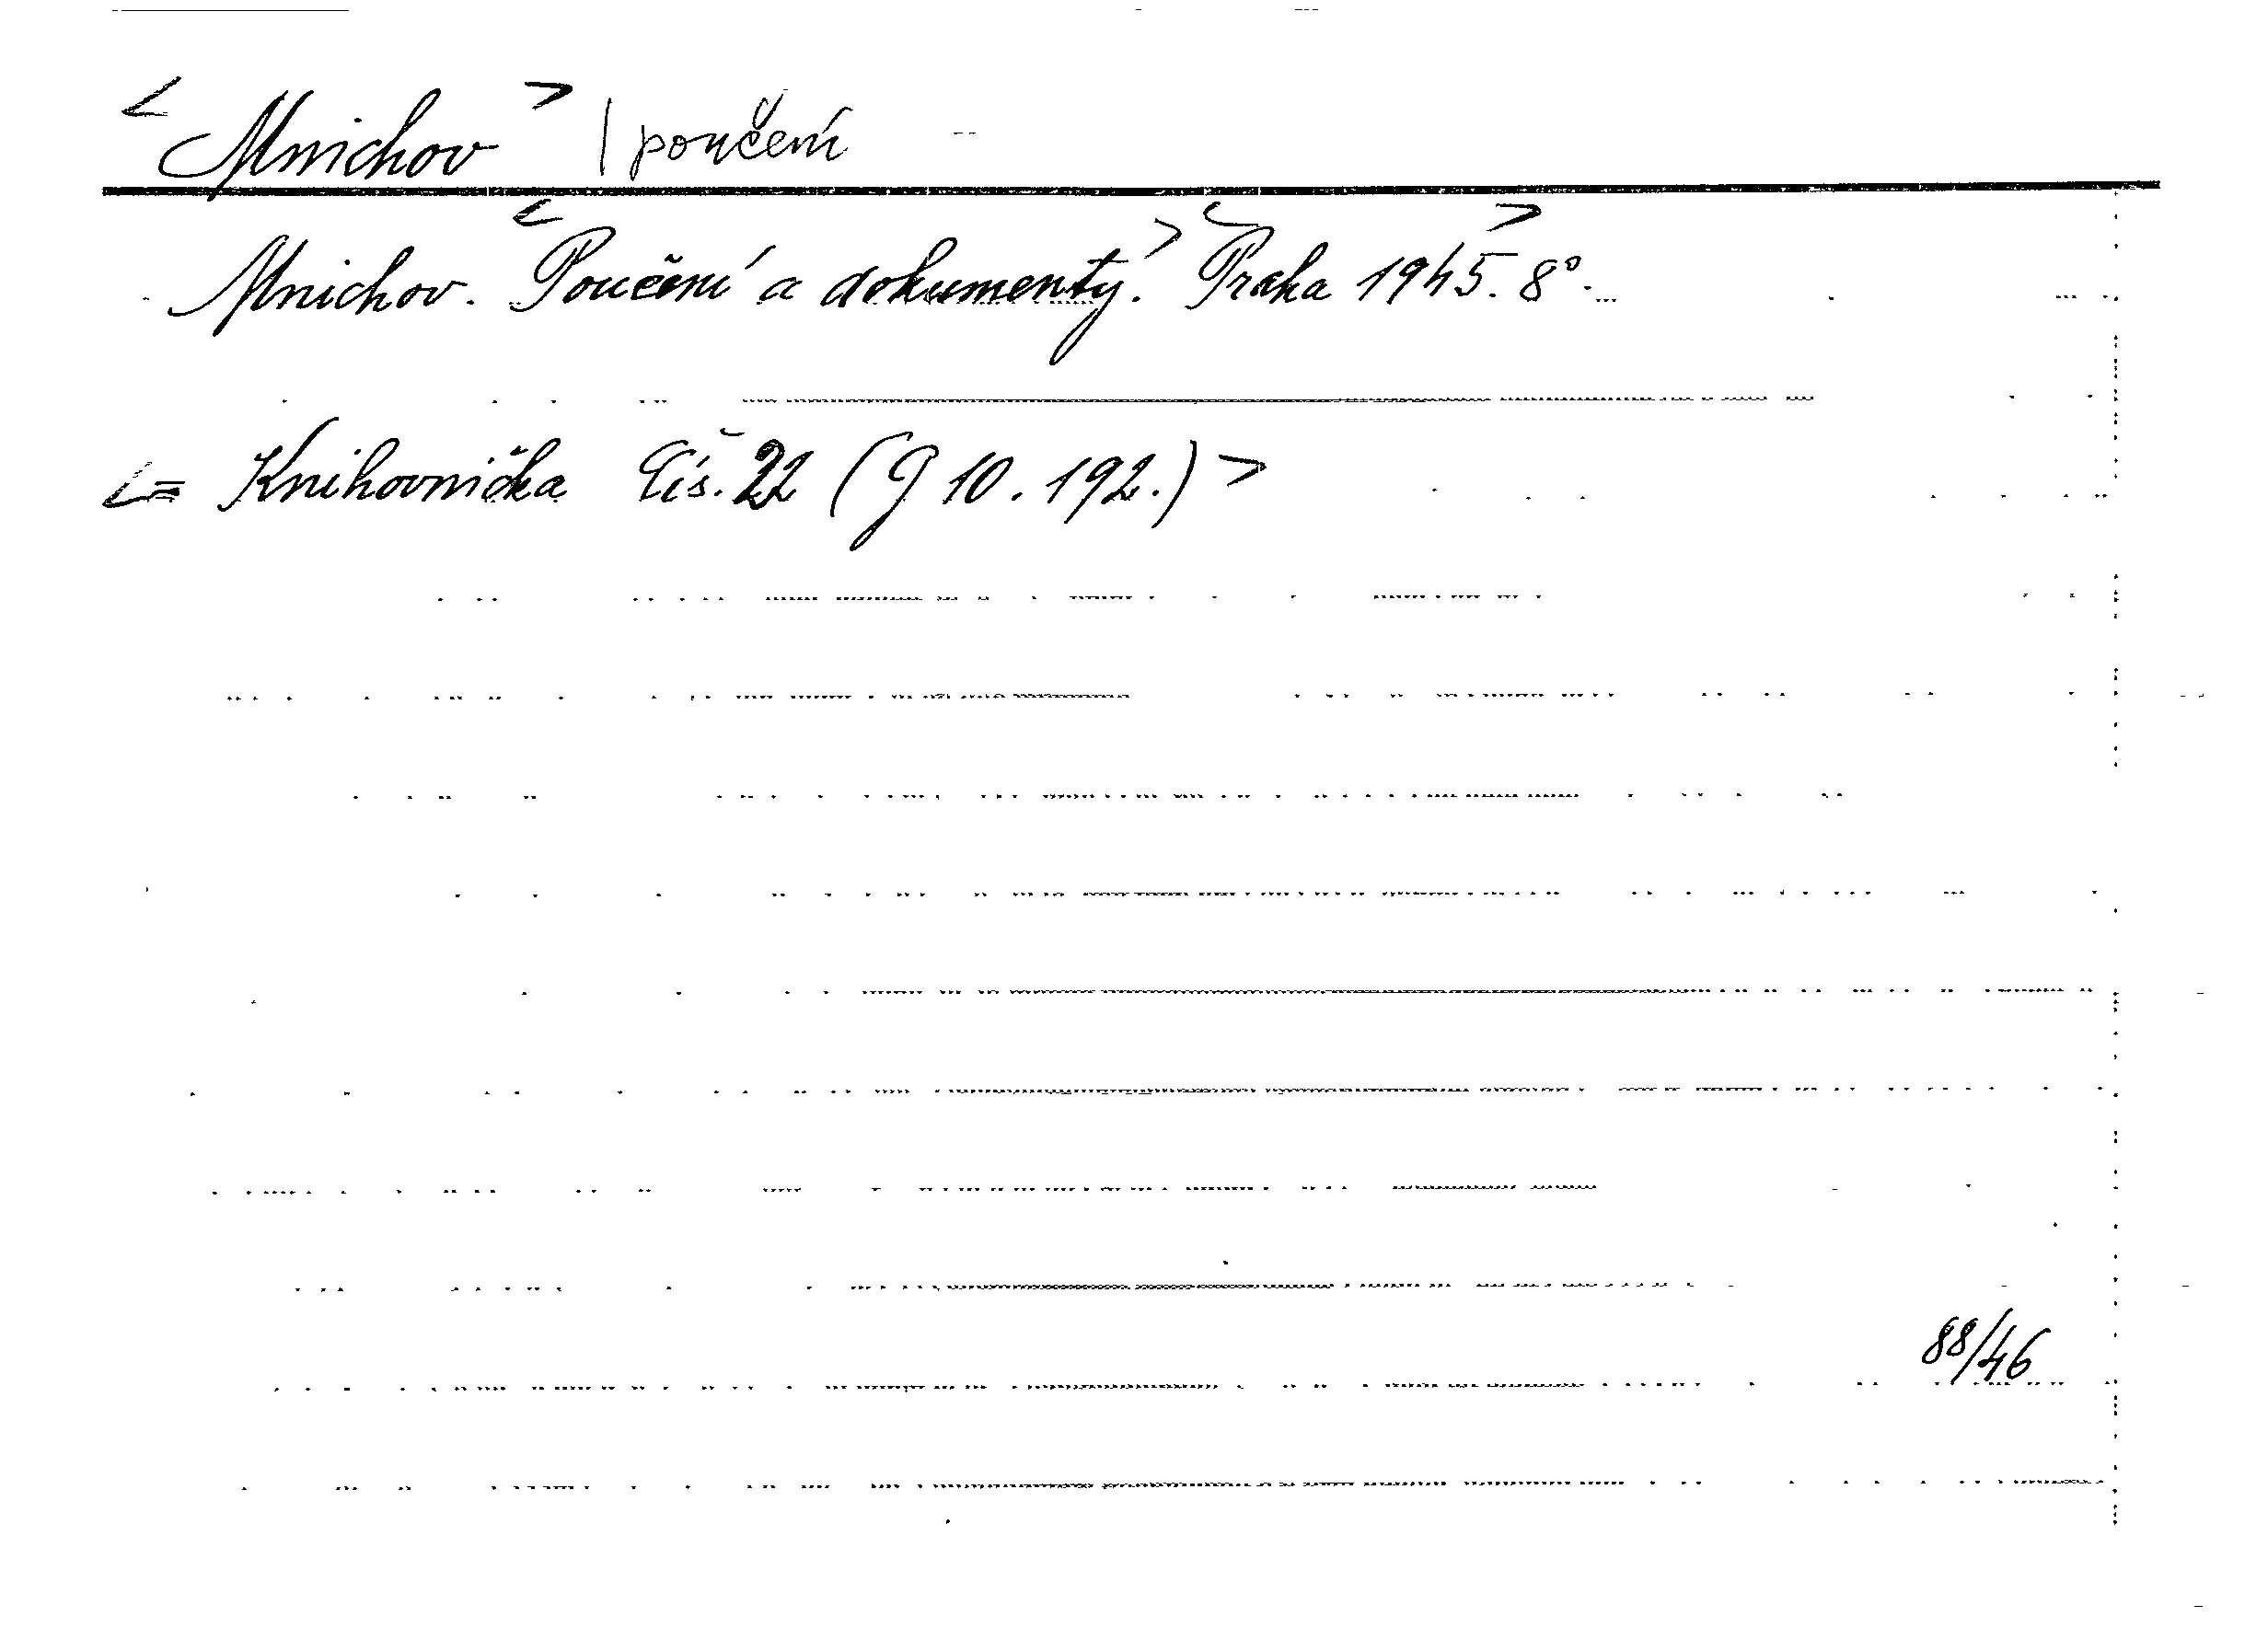 < Mnichov > | poučení
Mnichov. < Poučení a dokumenty. > < Praha 1945. > 8°.
< = Knihovnička Čís. 22 (G 10.192.) >
88/46